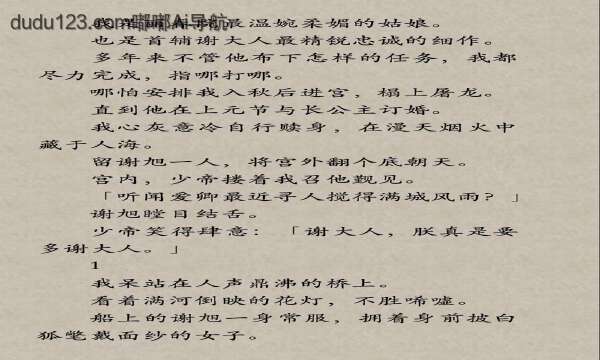 dudu123.com嘟嘟AI导航
最温婉柔媚的姑娘。
也是首辅谢大人最精锐忠诚的细作。
多年来不管他布下怎样的任务，我都
尽力完成，指哪打哪。
哪怕安排我入秋后进宫，榻上屠龙。
直到他在上元节与长公主订婚。
我心灰意冷自行赎身，在漫天烟火中
藏于人海。
留谢旭一人，将宫外翻个底朝天。
宫内，少帝搂着我召他觐见。
「听闻爱卿最近寻人搅得满城风雨？」
谢旭瞠目结舌。
少帝笑得肆意：「谢大人，朕真是要
多谢大人。」
1
我呆站在人声鼎沸的桥上。
看着满河倒映的花灯，不胜唏嘘。
船上的谢旭一身常服，拥着身前披白
狐氅戴面纱的女子。